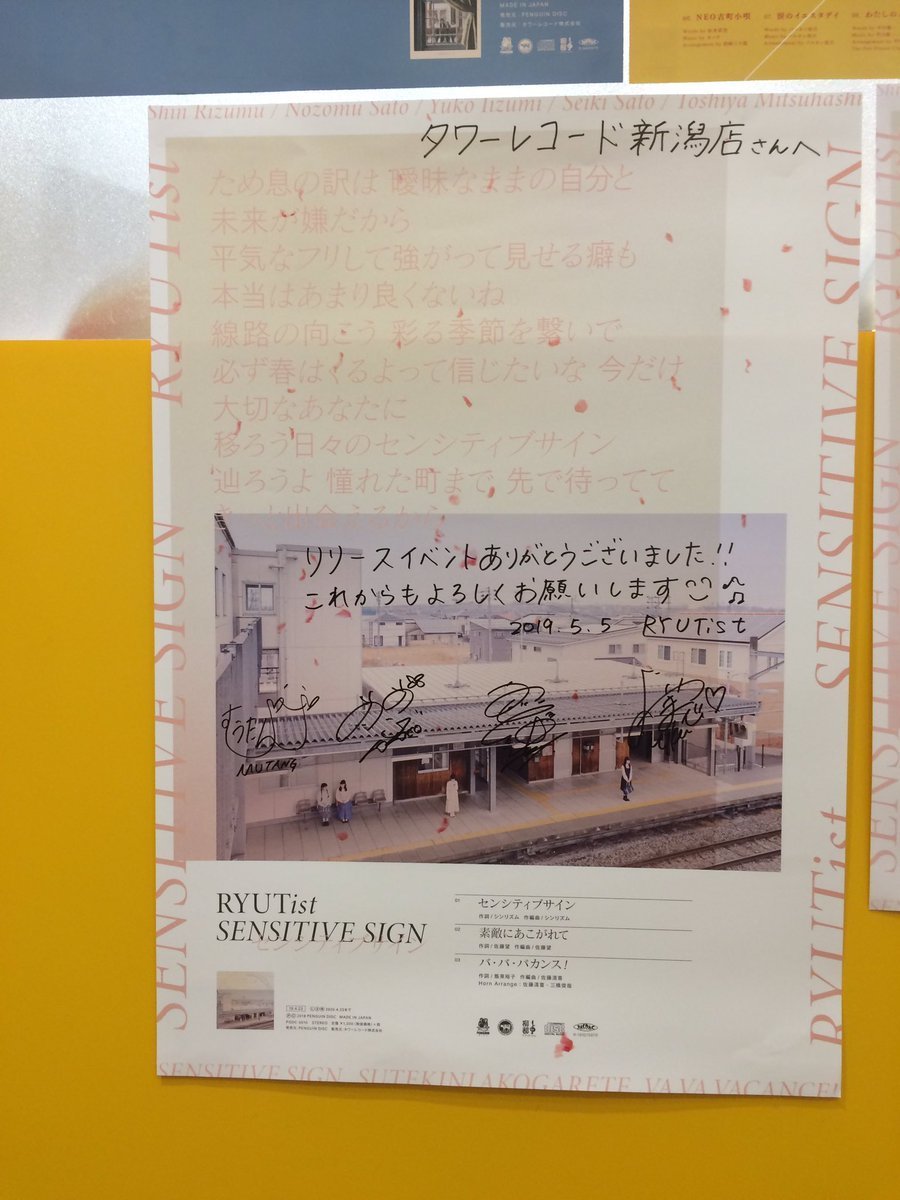 MADE IN JAPAN
発売元：PENGUIN DISC
販売元：タワーレコード株式会社
06 NEO古町小唄
07 涙のイエスタデイ
Shin Rizumu / Nozomu Sato / Yuko Iizumi / Seiki Sato / Toshiya Mitsuhashi
タワーレコード新潟店さんへ
ため息の訳は 曖昧なままの自分と
未来が嫌だから
平気なフリして強がって見せる癖も
本当はあまり良くないね
線路の向こう 彩る季節を繋いで
必ず春はくるよって信じたいな 今だけ
大切なあなたに
移ろう日々のセンシティブサイン
辿ろうよ 憧れた町まで 先で待ってて
きっと出会えるから
リリースイベントありがとうございました!!
これからもよろしくお願いします
2019.5.5 RYUTist
むうたん
MUTANG
RYUTist
SENSITIVE SIGN
センシティブサイン
01 センシティブサイン
作詞/シンリズム 作編曲/シンリズム
02 素敵にあこがれて
作詞/佐藤望 作編曲/佐藤望
03 バ・バ・バカンス!
Horn Arrange：佐藤清喜・三橋俊哉
SENSITIVE SIGN RYUTist
SENSITIVE SIGN
RYUTist
SENSITIVE SIGN SUTEKINI AKOGARETE VA VA VACANCE!
SENSITIVE SIGN